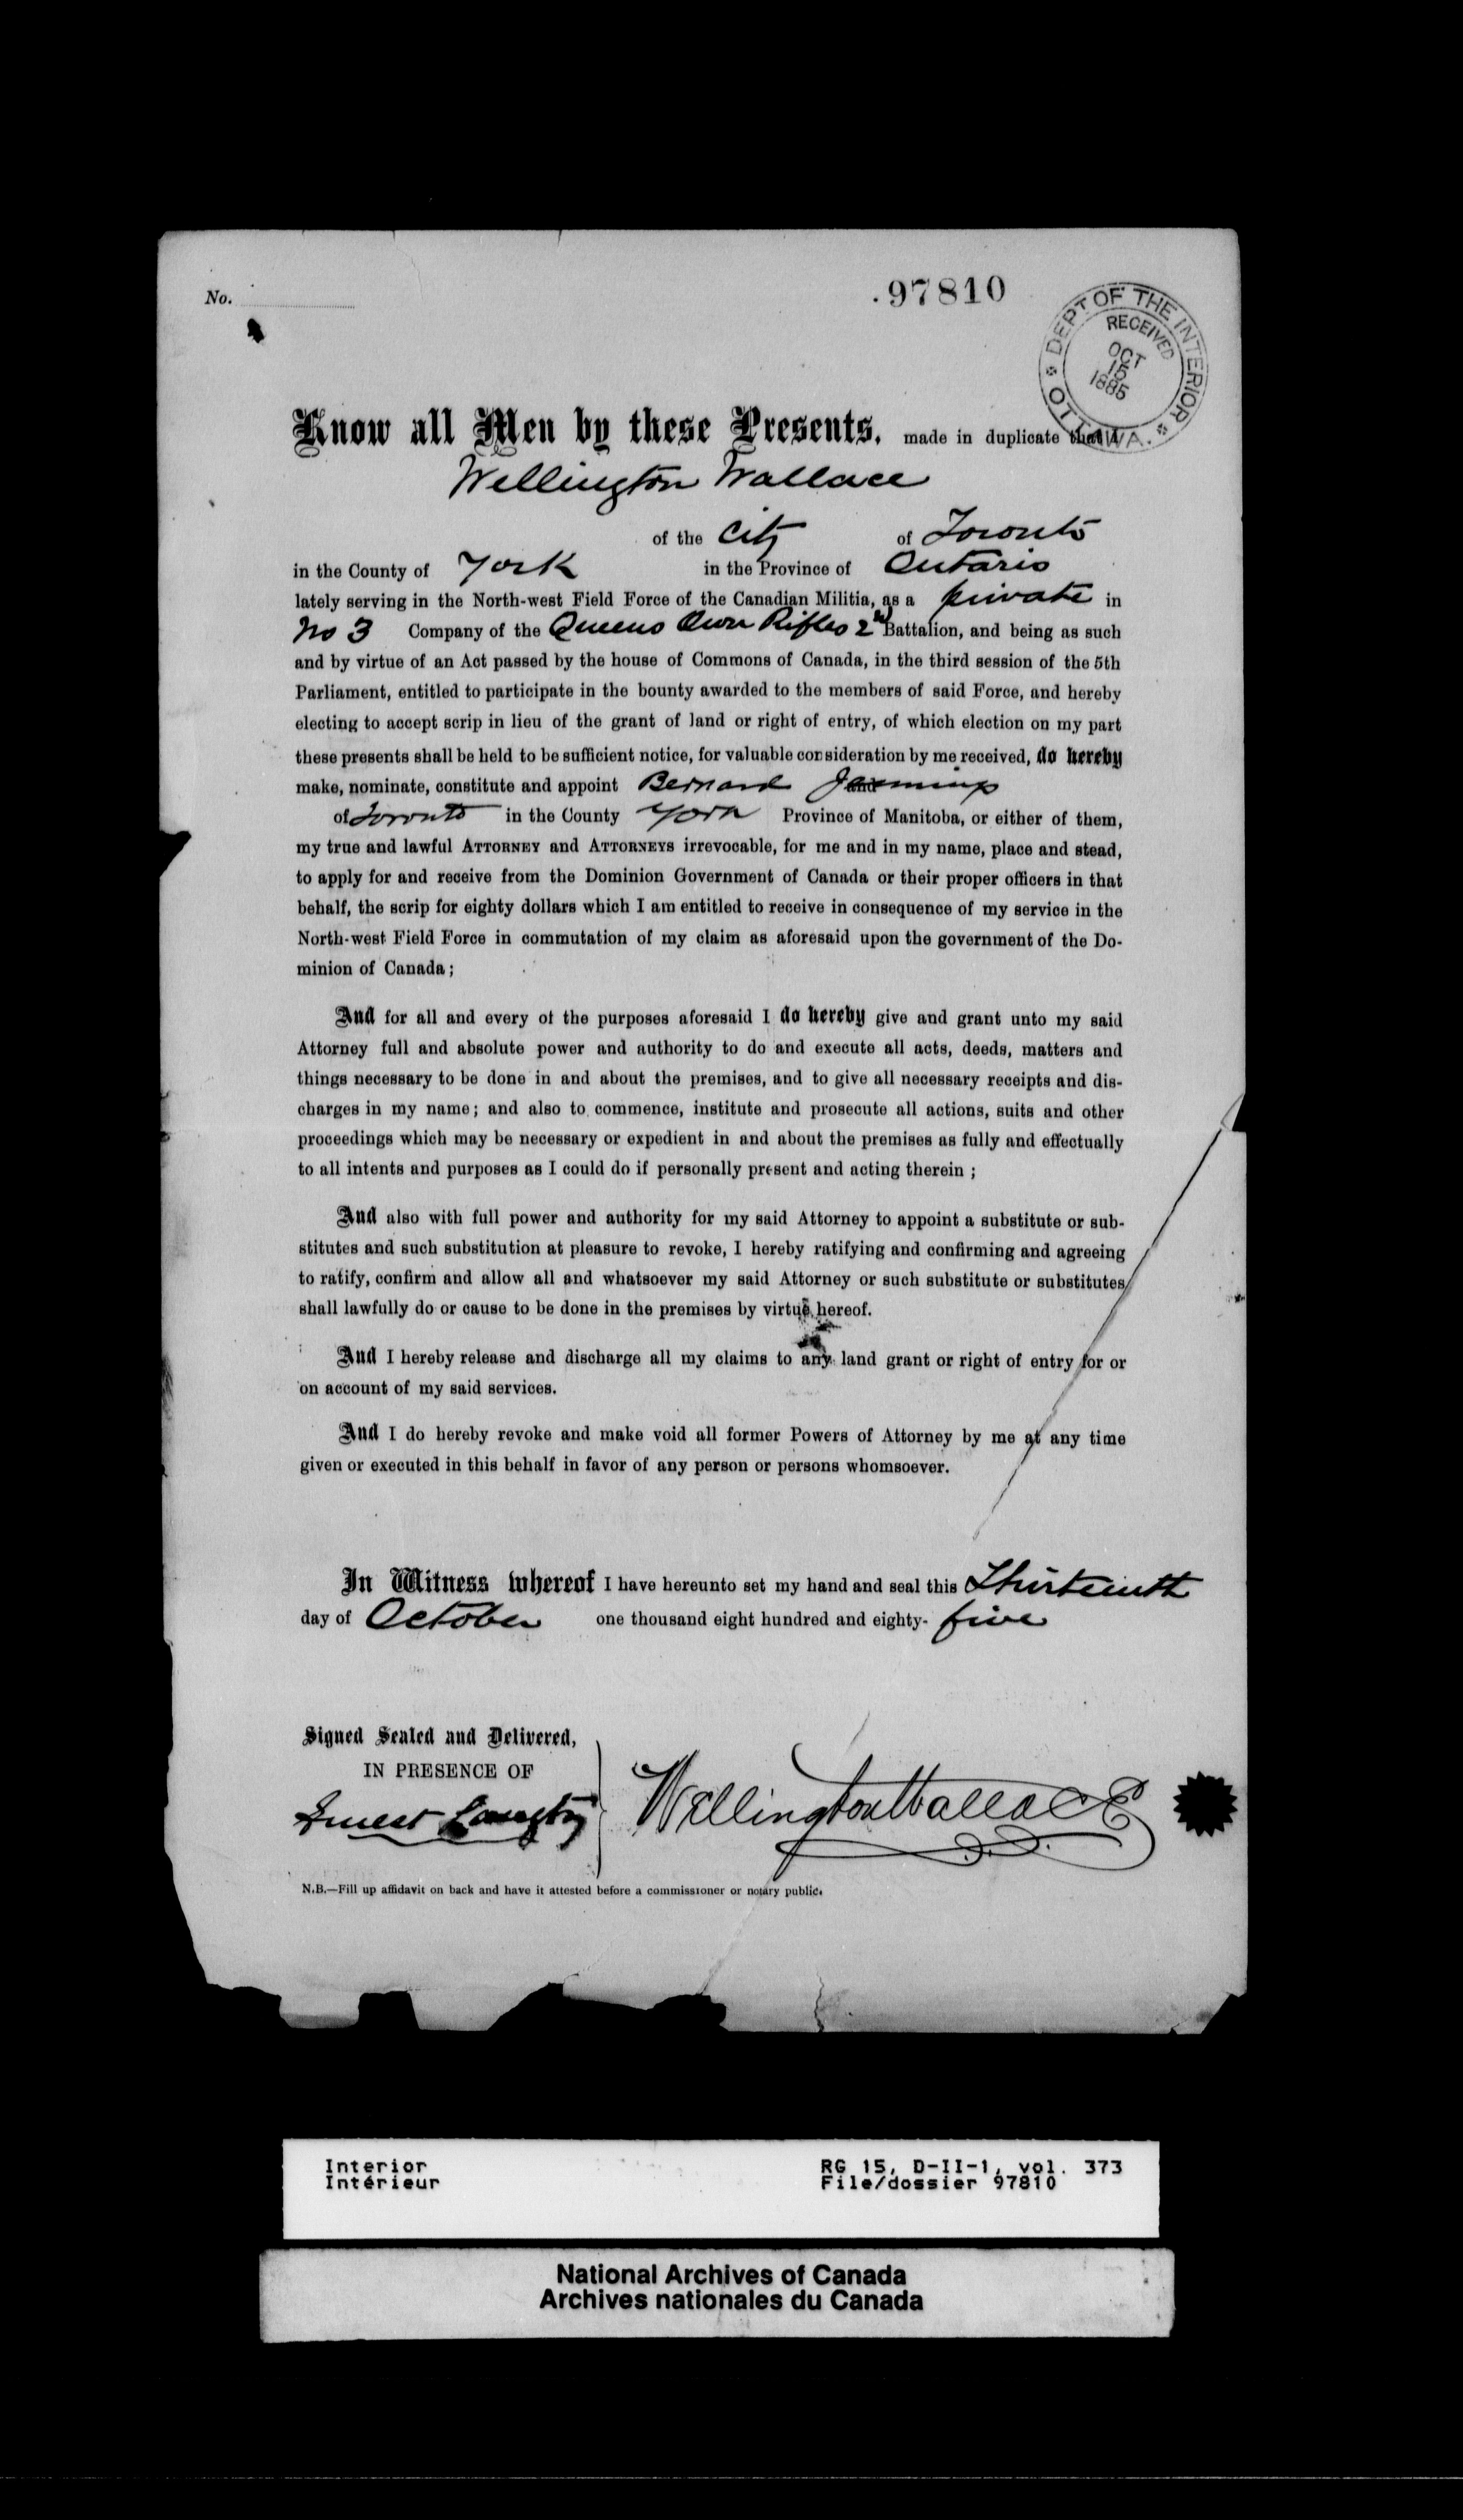 No.
.97810
DEPT OF THE INTERIOR OTTAWA.
RECEIVED
OCT
15
1885
Know all Men by these Presents, made in duplicate that I
Wellington Wallace
of the City of Toronto
in the County of York in the Province of Ontario
lately serving in the North-west Field Force of the Canadian Militia, as a private in
No 3 Company of the Queens Own Rifles 2nd Battalion, and being as such
and by virtue of an Act passed by the house of Commons of Canada, in the third session of the 5th
Parliament, entitled to participate in the bounty awarded to the members of said Force, and hereby
electing to accept scrip in lieu of the grant of land or right of entry, of which election on my part
these presents shall be held to be sufficient notice, for valuable consideration by me received, do hereby
make, nominate, constitute and appoint Bernard Jennings
of Toronto in the County York Province of Manitoba, or either of them,
my true and lawful ATTORNEY and ATTORNEYS irrevocable, for me and in my name, place and stead,
to apply for and receive from the Dominion Government of Canada or their proper officers in that
behalf, the scrip for eighty dollars which I am entitled to receive in consequence of my service in the
North-west Field Force in commutation of my claim as aforesaid upon the government of the Do-
minion of Canada;
And for all and every of the purposes aforesaid I do hereby give and grant unto my said
Attorney full and absolute power and authority to do and execute all acts, deeds, matters and
things necessary to be done in and about the premises, and to give all necessary receipts and dis-
charges in my name; and also to commence, institute and prosecute all actions, suits and other
proceedings which may be necessary or expedient in and about the premises as fully and effectually
to all intents and purposes as I could do if personally present and acting therein ;
And also with full power and authority for my said Attorney to appoint a substitute or sub-
stitutes and such substitution at pleasure to revoke, I hereby ratifying and confirming and agreeing
to ratify, confirm and allow all and whatsoever my said Attorney or such substitute or substitutes
shall lawfully do or cause to be done in the premises by virtue hereof.
And I hereby release and discharge all my claims to any land grant or right of entry for or
on account of my said services.
And I do hereby revoke and make void all former Powers of Attorney by me at any time
given or executed in this behalf in favor of any person or persons whomsoever.
In Witness whereof I have hereunto set my hand and seal this Thirteenth
day of October one thousand eight hundred and eighty- five
Signed Sealed and Delivered,
IN PRESENCE OF
Ernest Langtry
Wellington Wallace
N.B.—Fill up affidavit on back and have it attested before a commissioner or notary public.
Interior
Intérieur
RG 15, D-II-1, vol. 373
File/dossier 97810
National Archives of Canada
Archives nationales du Canada